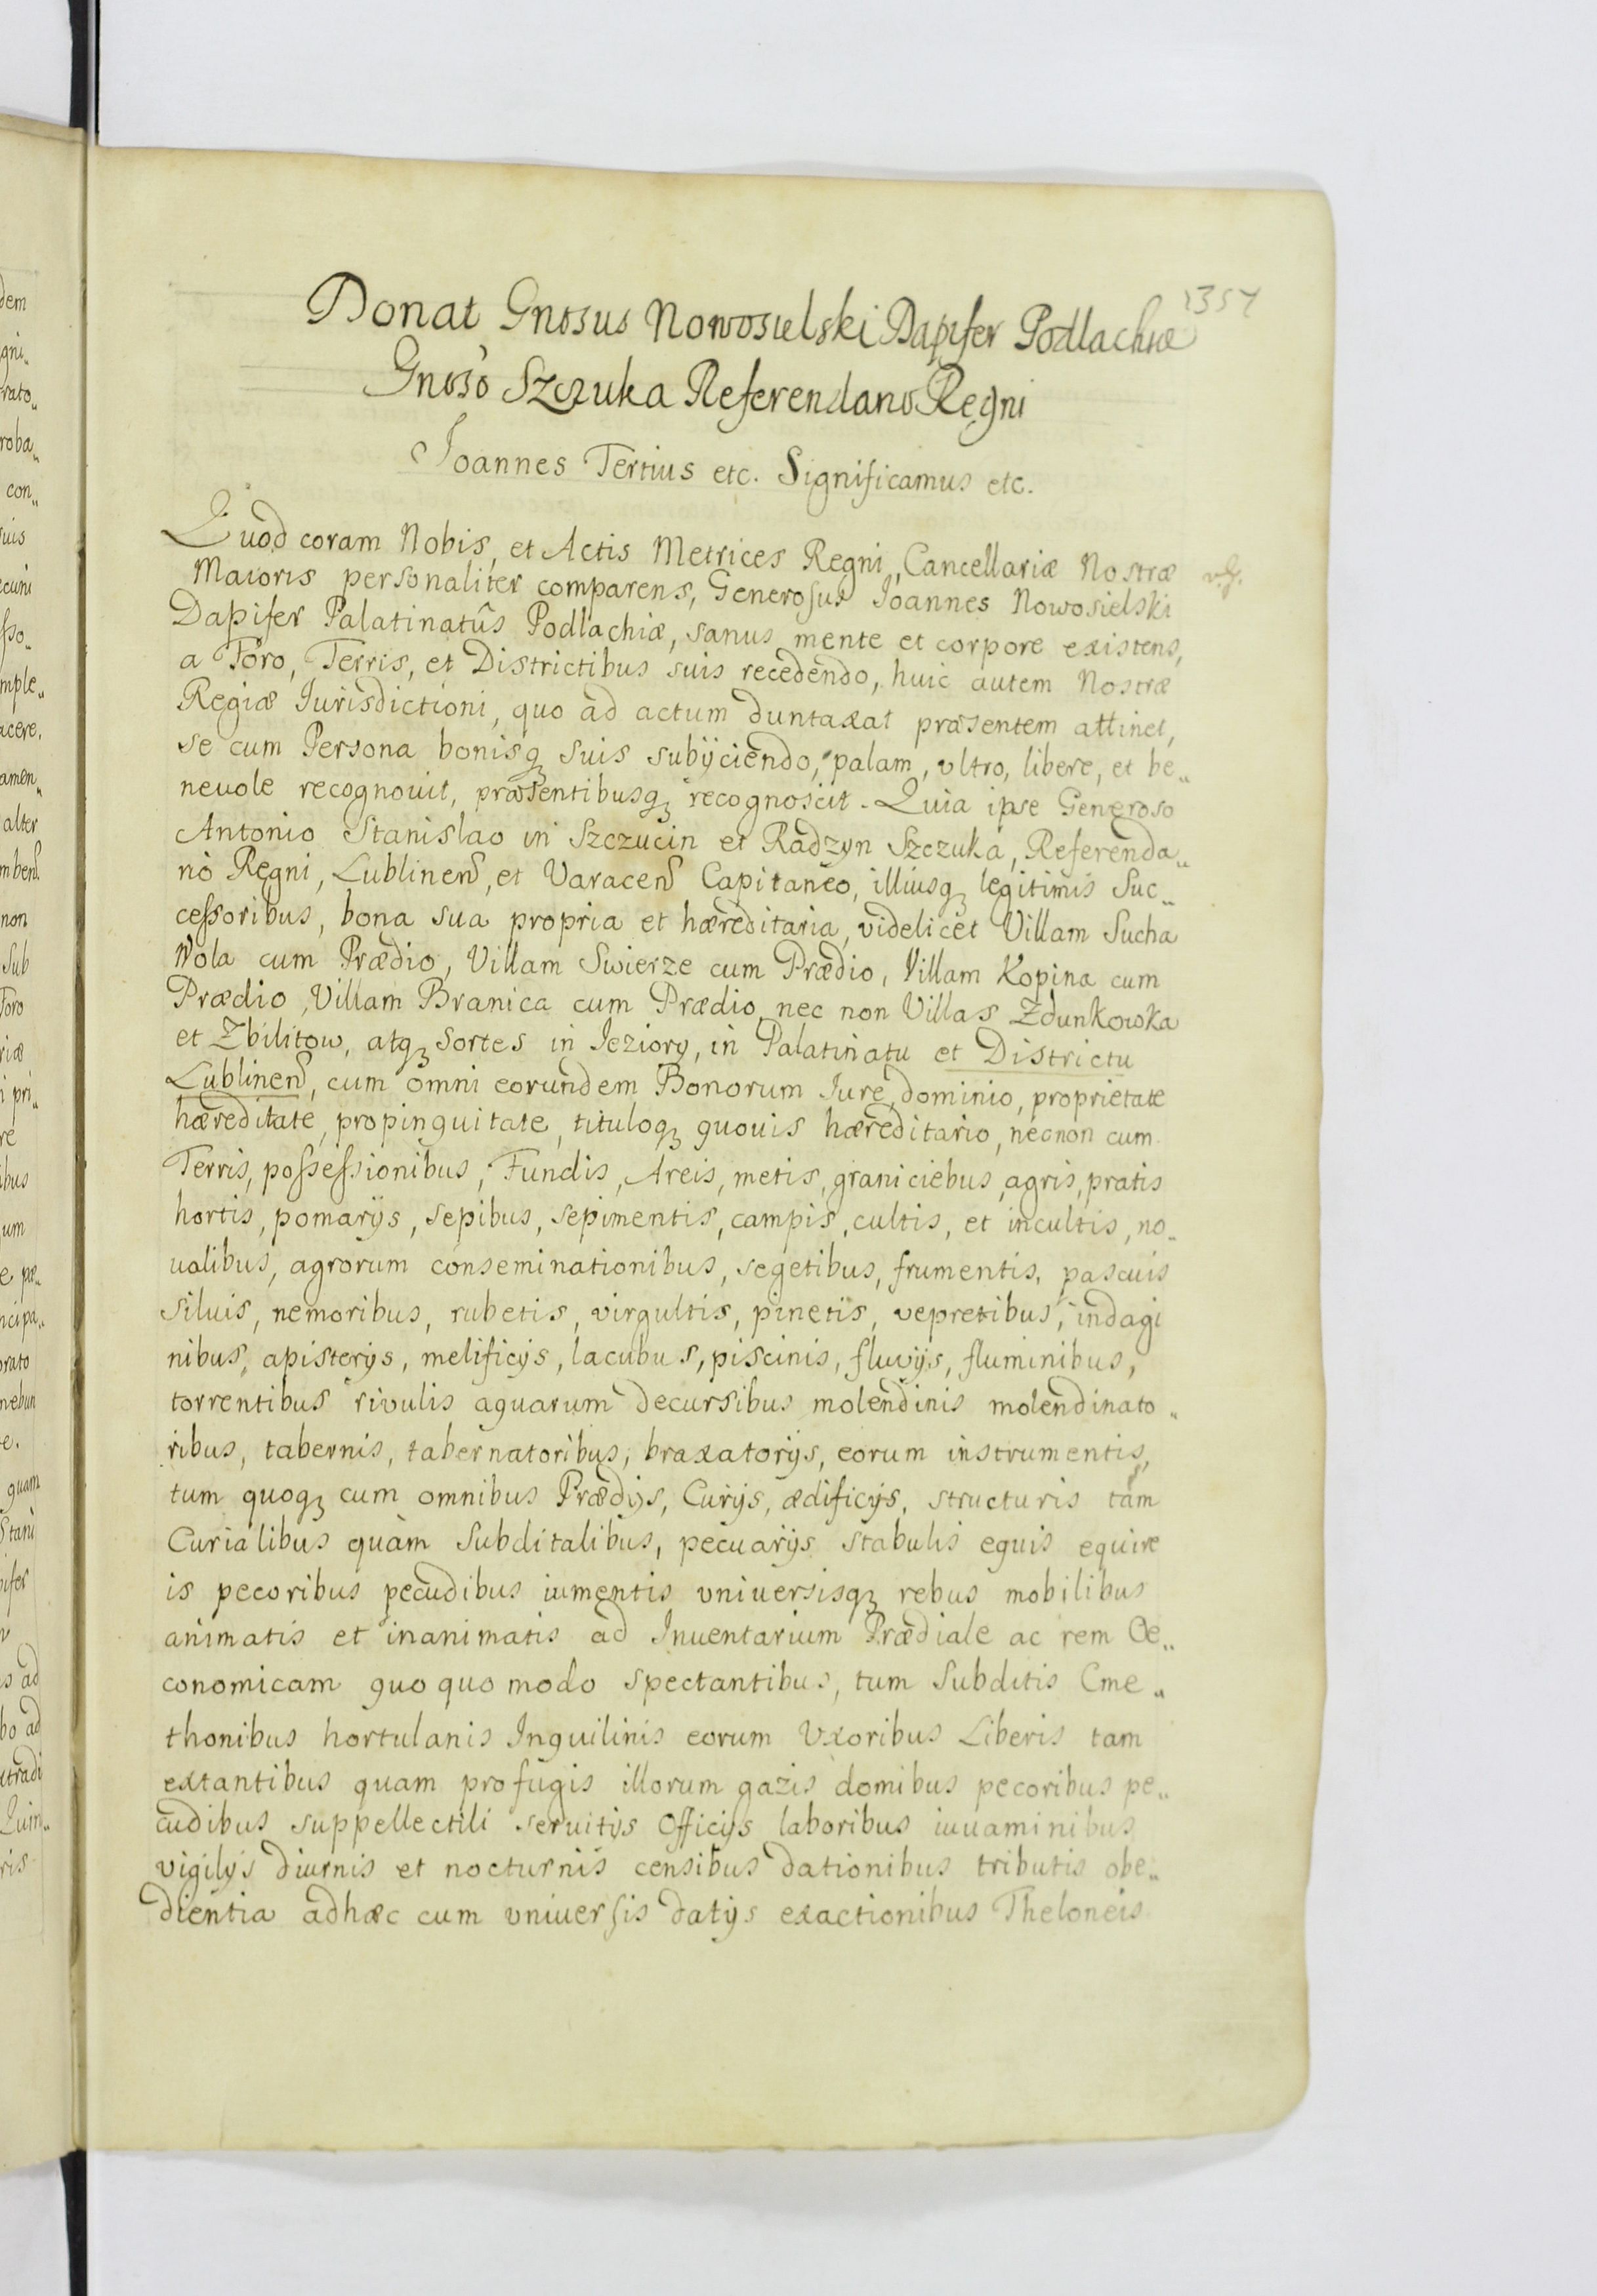 Donat Gnosus Nowosielski Dapifer Podlachiæ
Gnoso Szczuka Referendario Regni
Ioannes Tertius etc. Significamus etc.
Quod coram Nobis, et Actis Metrices Regni, Cancellariæ Nostræ
Maioris personaliter comparens, Generosus Ioannes Nowosielski
Dapifer Palatinatûs Podlachiæ, sanus mente et corpore existens,
a Foro, Terris, et Districtibus suis recedendo, huic autem Nostræ
Regiæ Iurisdictioni, quo ad actum duntaxat præsentem attinet,
se cum Persona bonisq suis subijciendo, palam, vltro, libere, et be„
neuole recognouit, præsentibusq recognoscit. Quia ipse Generoso
Antonio Stanislao in Szczucin et Radzyn Szczuka, Referenda„
rio Regni, Lublinen, et Varacen Capitaneo, illiusq legitimis Suc„
cessoribus, bona sua propria et hæreditaria, videlicet Villam Sucha
Wola cum Prædio, Villam Swierze cum Prædio, Villam Kopina cum
Prædio, Villam Branica cum Prædio, nec non Villas Zdunkowka
et Zbilitow, atq Sortes in Ieziory, in Palatinatu et Districtu
Lublinen, cum omni eorundem Bonorum Iure, dominio, proprietate
hæreditate, propinquitate, tituloq quouis hæreditario, necnon cum
Terris, possessionibus, Fundis, Areis, metis, graniciebus, agris, pratis
hortis, pomarijs, sepibus, sepimentis, campis, cultis, et incultis, no„
ualibus, agrorum conseminationibus, segetibus, frumentis, pascuis
siluis, nemoribus, rubetis, virgultis, pinetis, vepretibus, indagi
nibus, apisterijs, melificijs, lacubus, piscinis, fluvijs, fluminibus,
torrentibus rivulis aquarum decursibus molendinis molendinato„
ribus, tabernis, tabernatoribus, braxatorijs, eorum instrumentis,
tum quoq cum omnibus Prædijs, Curijs, ædificijs, structuris tam
Curialibus quàm Subditalibus, pecuarijs stabulis equis equire
is pecoribus pecudibus iumentis vniversisq rebus mobilibus
animatis et inanimatis ad Inuentarium Prædiale ac rem Oe„
conomicam quo quo modo spectantibus, tum Subditis Cme„
thonibus hortulanis Inquilinis eorum Vxoribus Liberis tam
extantibus quam profugis illorum gazis domibus pecoribus pe„
cudibus suppellectili seruitijs Officijs laboribus iuuaminibus
vigilijs diurnis et nocturnis censibus dationibus tributis obe„
dientia adhæc cum vniuersis datijs exactionibus Theloneis